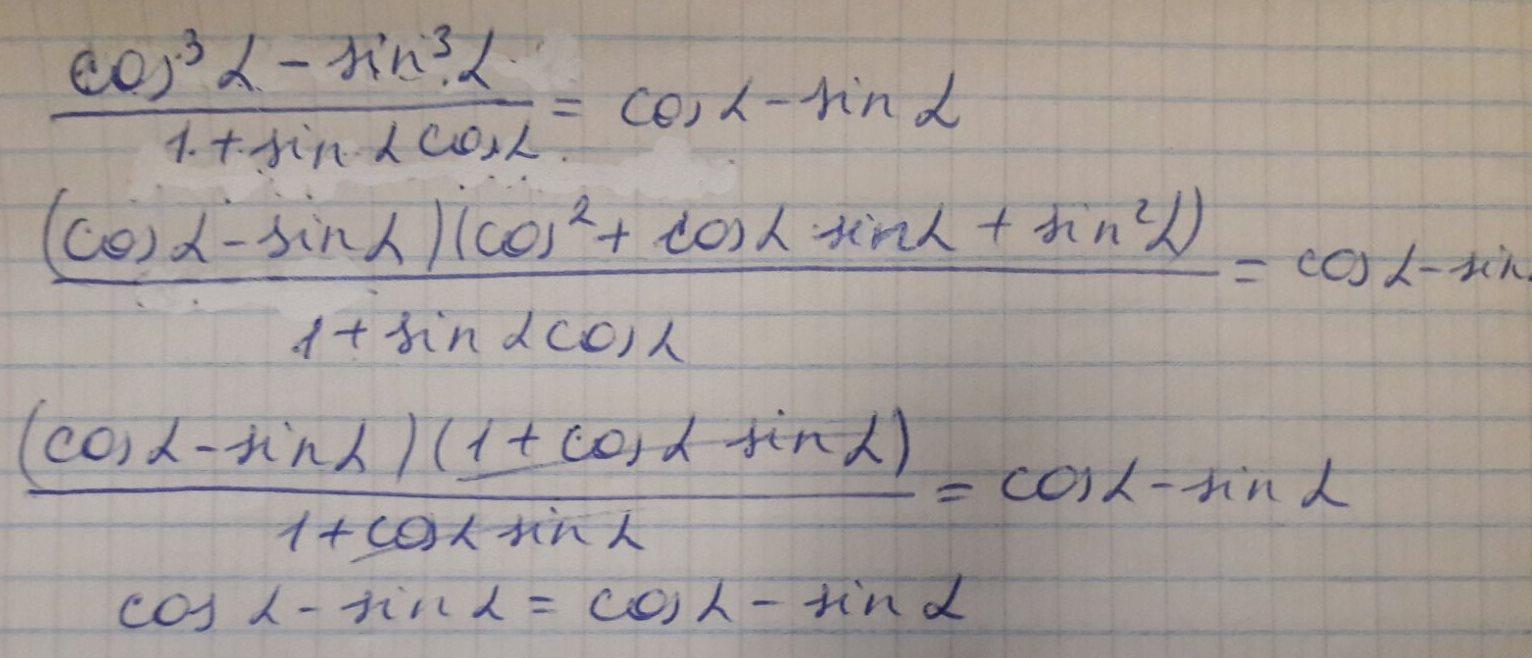 cos³α - sin³α / 1 + sin α cos α = cos α - sin α
(cos α - sin α)(cos² + cos α sin α + sin²α) / 1 + sin α cos α = cos α - sin
(cos α - sin α)(1 + cos α sin α) / 1 + cos α sin α = cos α - sin α
cos α - sin α = cos α - sin α